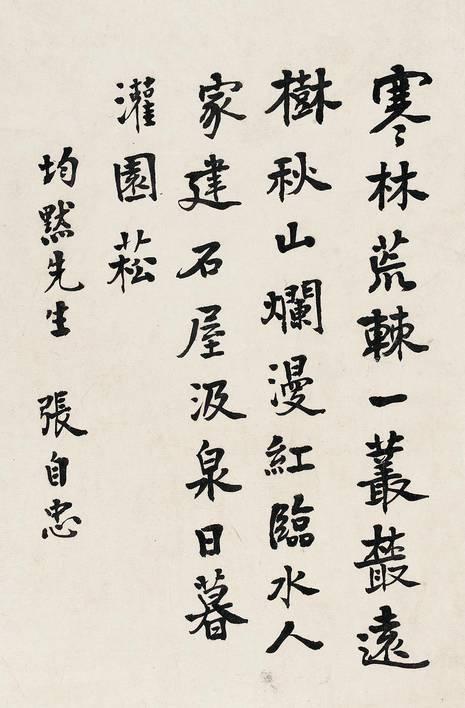 寒林荒棘一叢叢遠
樹秋山爛漫紅臨水人
家建石屋汲泉日暮
灌園菘
均默先生 張自忠